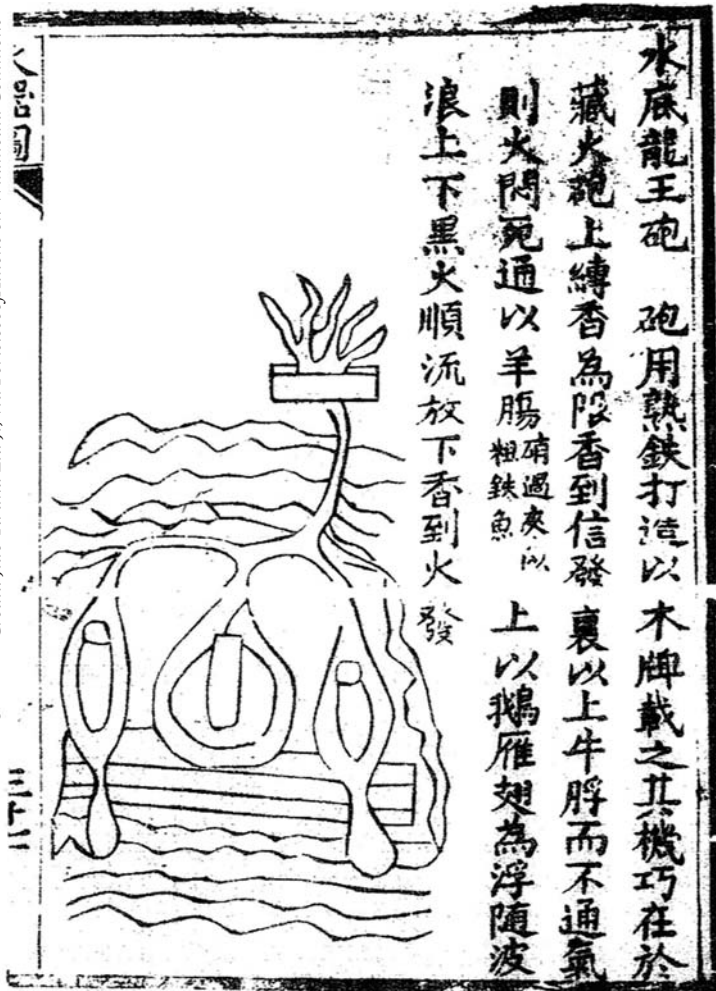 水底龍王砲　砲用熟鉄打造以木牌載之其機巧在於
藏火砲上縛香為限香到信發裏以上牛脬而不通氣
則火悶死通以羊腸硝過夾以粗鉄魚上以鵝雁翅為浮随波
浪上下黑火順流放下香到火發
火器圖
三十一